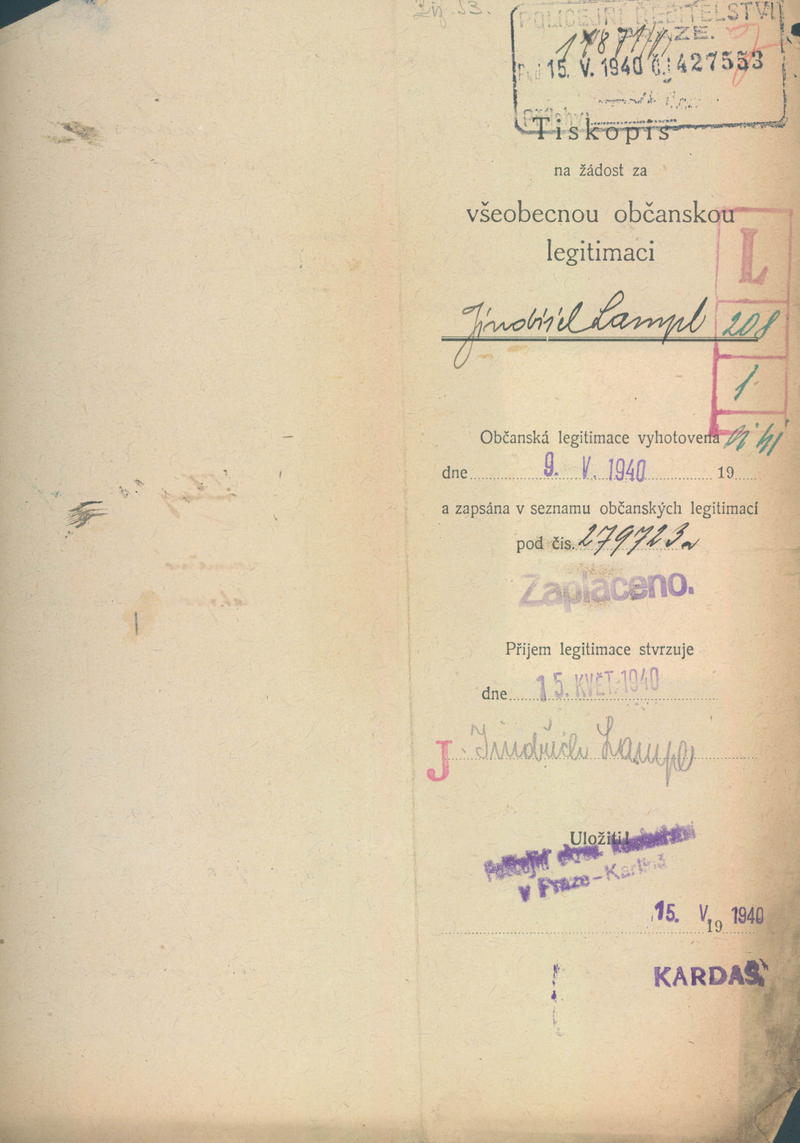 POLICEJNÍ ŘEDITELSTVÍ
ZE.
15. V. 1940 Č.j. 427553
Tiskopis
na žádost za
všeobecnou občanskou
legitimaci
L
Jindřich Lampl
208
1
Občanská legitimace vyhotovena
dne 9. V. 1940 19
a zapsána v seznamu občanských legitimací
pod čís. 279723
Zaplaceno.
Příjem legitimace stvrzuje
dne 15. KVĚT. 1940
J. Jindřich Lampl
Uložiti!
v Praze-Karlíně
15. V. 1940
19
KARDAŠ